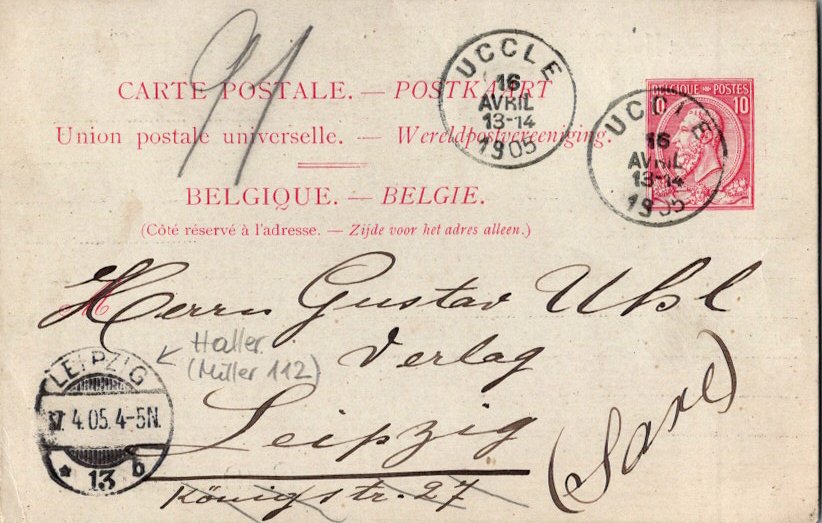 91
CARTE POSTALE. — POSTKAART
Union postale universelle. — Wereldpostvereeniging.
BELGIQUE. — BELGIE.
(Côté réservé à l'adresse. — Zijde voor het adres alleen.)
UCCLE
16
AVRIL
13-14
1905
BELGIQUE POSTES
10 10
UCCLE
16
AVRIL
13-14
1905
M
Herrn Gustav Uhl
Verlag
Leipzig
(Saxe)
Königstr. 27
Haller
(Müller 112)
LEIPZIG
17.4.05.4-5N.
* 13 b